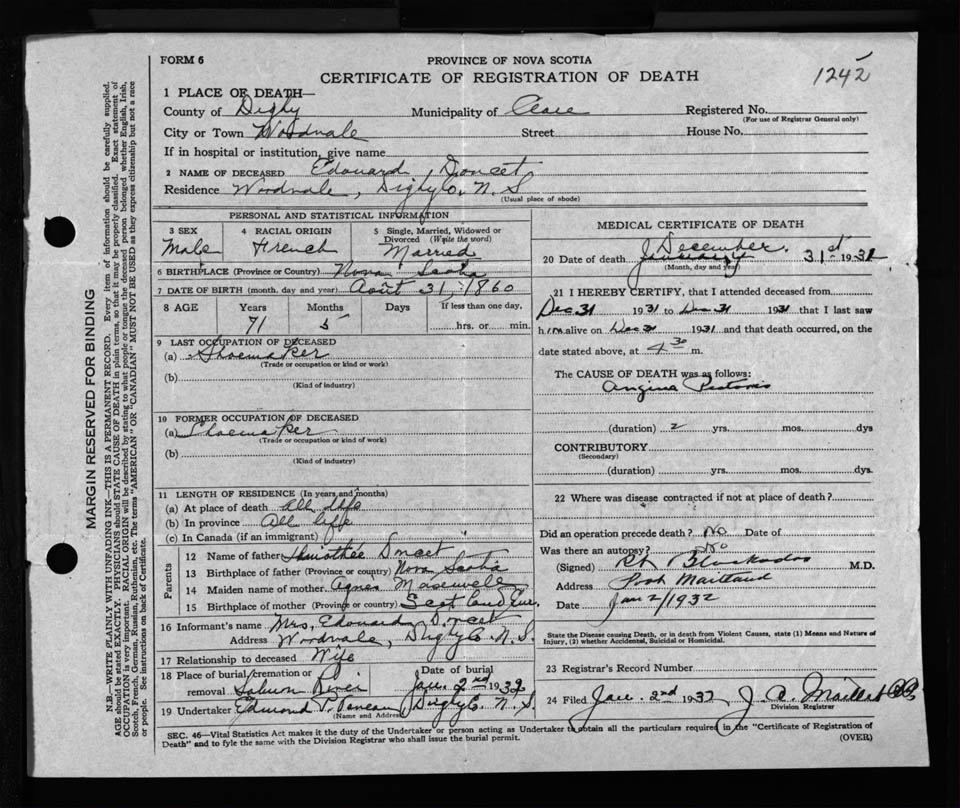 FORM 6
PROVINCE OF NOVA SCOTIA
CERTIFICATE OF REGISTRATION OF DEATH
1242
1 PLACE OF DEATH—
County of Digby Municipality of Clare Registered No.
(For use of Registrar General only)
City or Town Woodvale Street House No.
If in hospital or institution, give name
2 NAME OF DECEASED Edouard Doucet
Residence Woodvale, Digby Co. N. S
(Usual place of abode)
PERSONAL AND STATISTICAL INFORMATION
3 SEX
Male
4 RACIAL ORIGIN
French
5 Single, Married, Widowed or
Divorced (Write the word)
Married
6 BIRTHPLACE (Province or Country) Nova Scotia
7 DATE OF BIRTH (month, day and year) Août 31, 1860
8 AGE Years Months Days If less than one day,
71 5 hrs. or min.
9 LAST OCCUPATION OF DECEASED
(a) Shoemaker
(Trade or occupation or kind or work)
(b)
(Kind of industry)
10 FORMER OCCUPATION OF DECEASED
(a) Shoemaker
(Trade or occupation or kind of work)
(b)
(Kind of industry)
11 LENGTH OF RESIDENCE (In years and months)
(a) At place of death All life
(b) In province All life
(c) In Canada (if an immigrant)
Parents
12 Name of father Doucet
13 Birthplace of father (Province or country) Nova Scotia
14 Maiden name of mother Agnes
15 Birthplace of mother (Province or country)
16 Informant's name Mrs. Edouard Doucet
Address Woodvale, Digby Co. N. S.
17 Relationship to deceased Wife
18 Place of burial/cremation or
removal Salmon River
Date of burial
Jan. 2nd 1932
19 Undertaker Edmond Digby Co. N. S.
(Name and Address)
MEDICAL CERTIFICATE OF DEATH
20 Date of death December 31st 1931
(Month, day and year)
21 I HEREBY CERTIFY, that I attended deceased from
Dec 31 1931 to Dec 31 1931 that I last saw
him alive on Dec 31 1931 and that death occurred, on the
date stated above, at 4 30 m.
The CAUSE OF DEATH was as follows:
Angina Pectoris
(duration) 2 yrs. mos. dys
CONTRIBUTORY
(Secondary)
(duration) yrs. mos. dys.
22 Where was disease contracted if not at place of death?
Did an operation precede death? No Date of
Was there an autopsy? No
(Signed) M.D.
Address Port Maitland
Date Jan 2/1932
State the Disease causing Death, or in death from Violent Causes, state (1) Means and Nature of
Injury, (2) whether Accidental, Suicidal or Homicidal.
23 Registrar's Record Number
24 Filed Jan. 2nd 1932 J. A.
Division Registrar
SEC. 46—Vital Statistics Act makes it the duty of the Undertaker or person acting as Undertaker to obtain all the particulars required in the "Certificate of Registration of
Death" and to fyle the same with the Division Registrar who shall issue the burial permit.
(OVER)
MARGIN RESERVED FOR BINDING
N.B.—WRITE PLAINLY WITH UNFADING INK—THIS IS A PERMANENT RECORD. Every item of information should be carefully supplied.
AGE should be stated EXACTLY. PHYSICIANS should STATE CAUSE OF DEATH in plain terms, so that it may be properly classified. Exact statement of
OCCUPATION is very important. RACIAL ORIGIN will be described by stating to what people or tongue the deceased person belonged whether English, Irish,
Scotch, French, German, Russian, Ruthenian, etc. The terms "AMERICAN" OR "CANADIAN" MUST NOT BE USED as they express citizenship but not a race
or people. See instructions on back of Certificate.